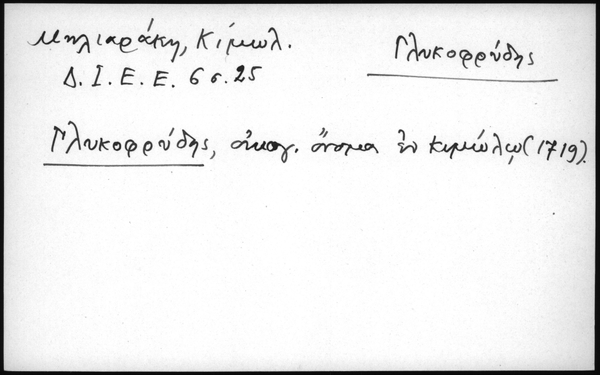 Μηλιαράκη, Κίμωλ.
Δ. Ι. Ε. Ε. 6 σ. 25
Γλυκοφρύδης
Γλυκοφρύδης, οἰκογ. ὄνομα ἐν Κιμώλῳ (1719).